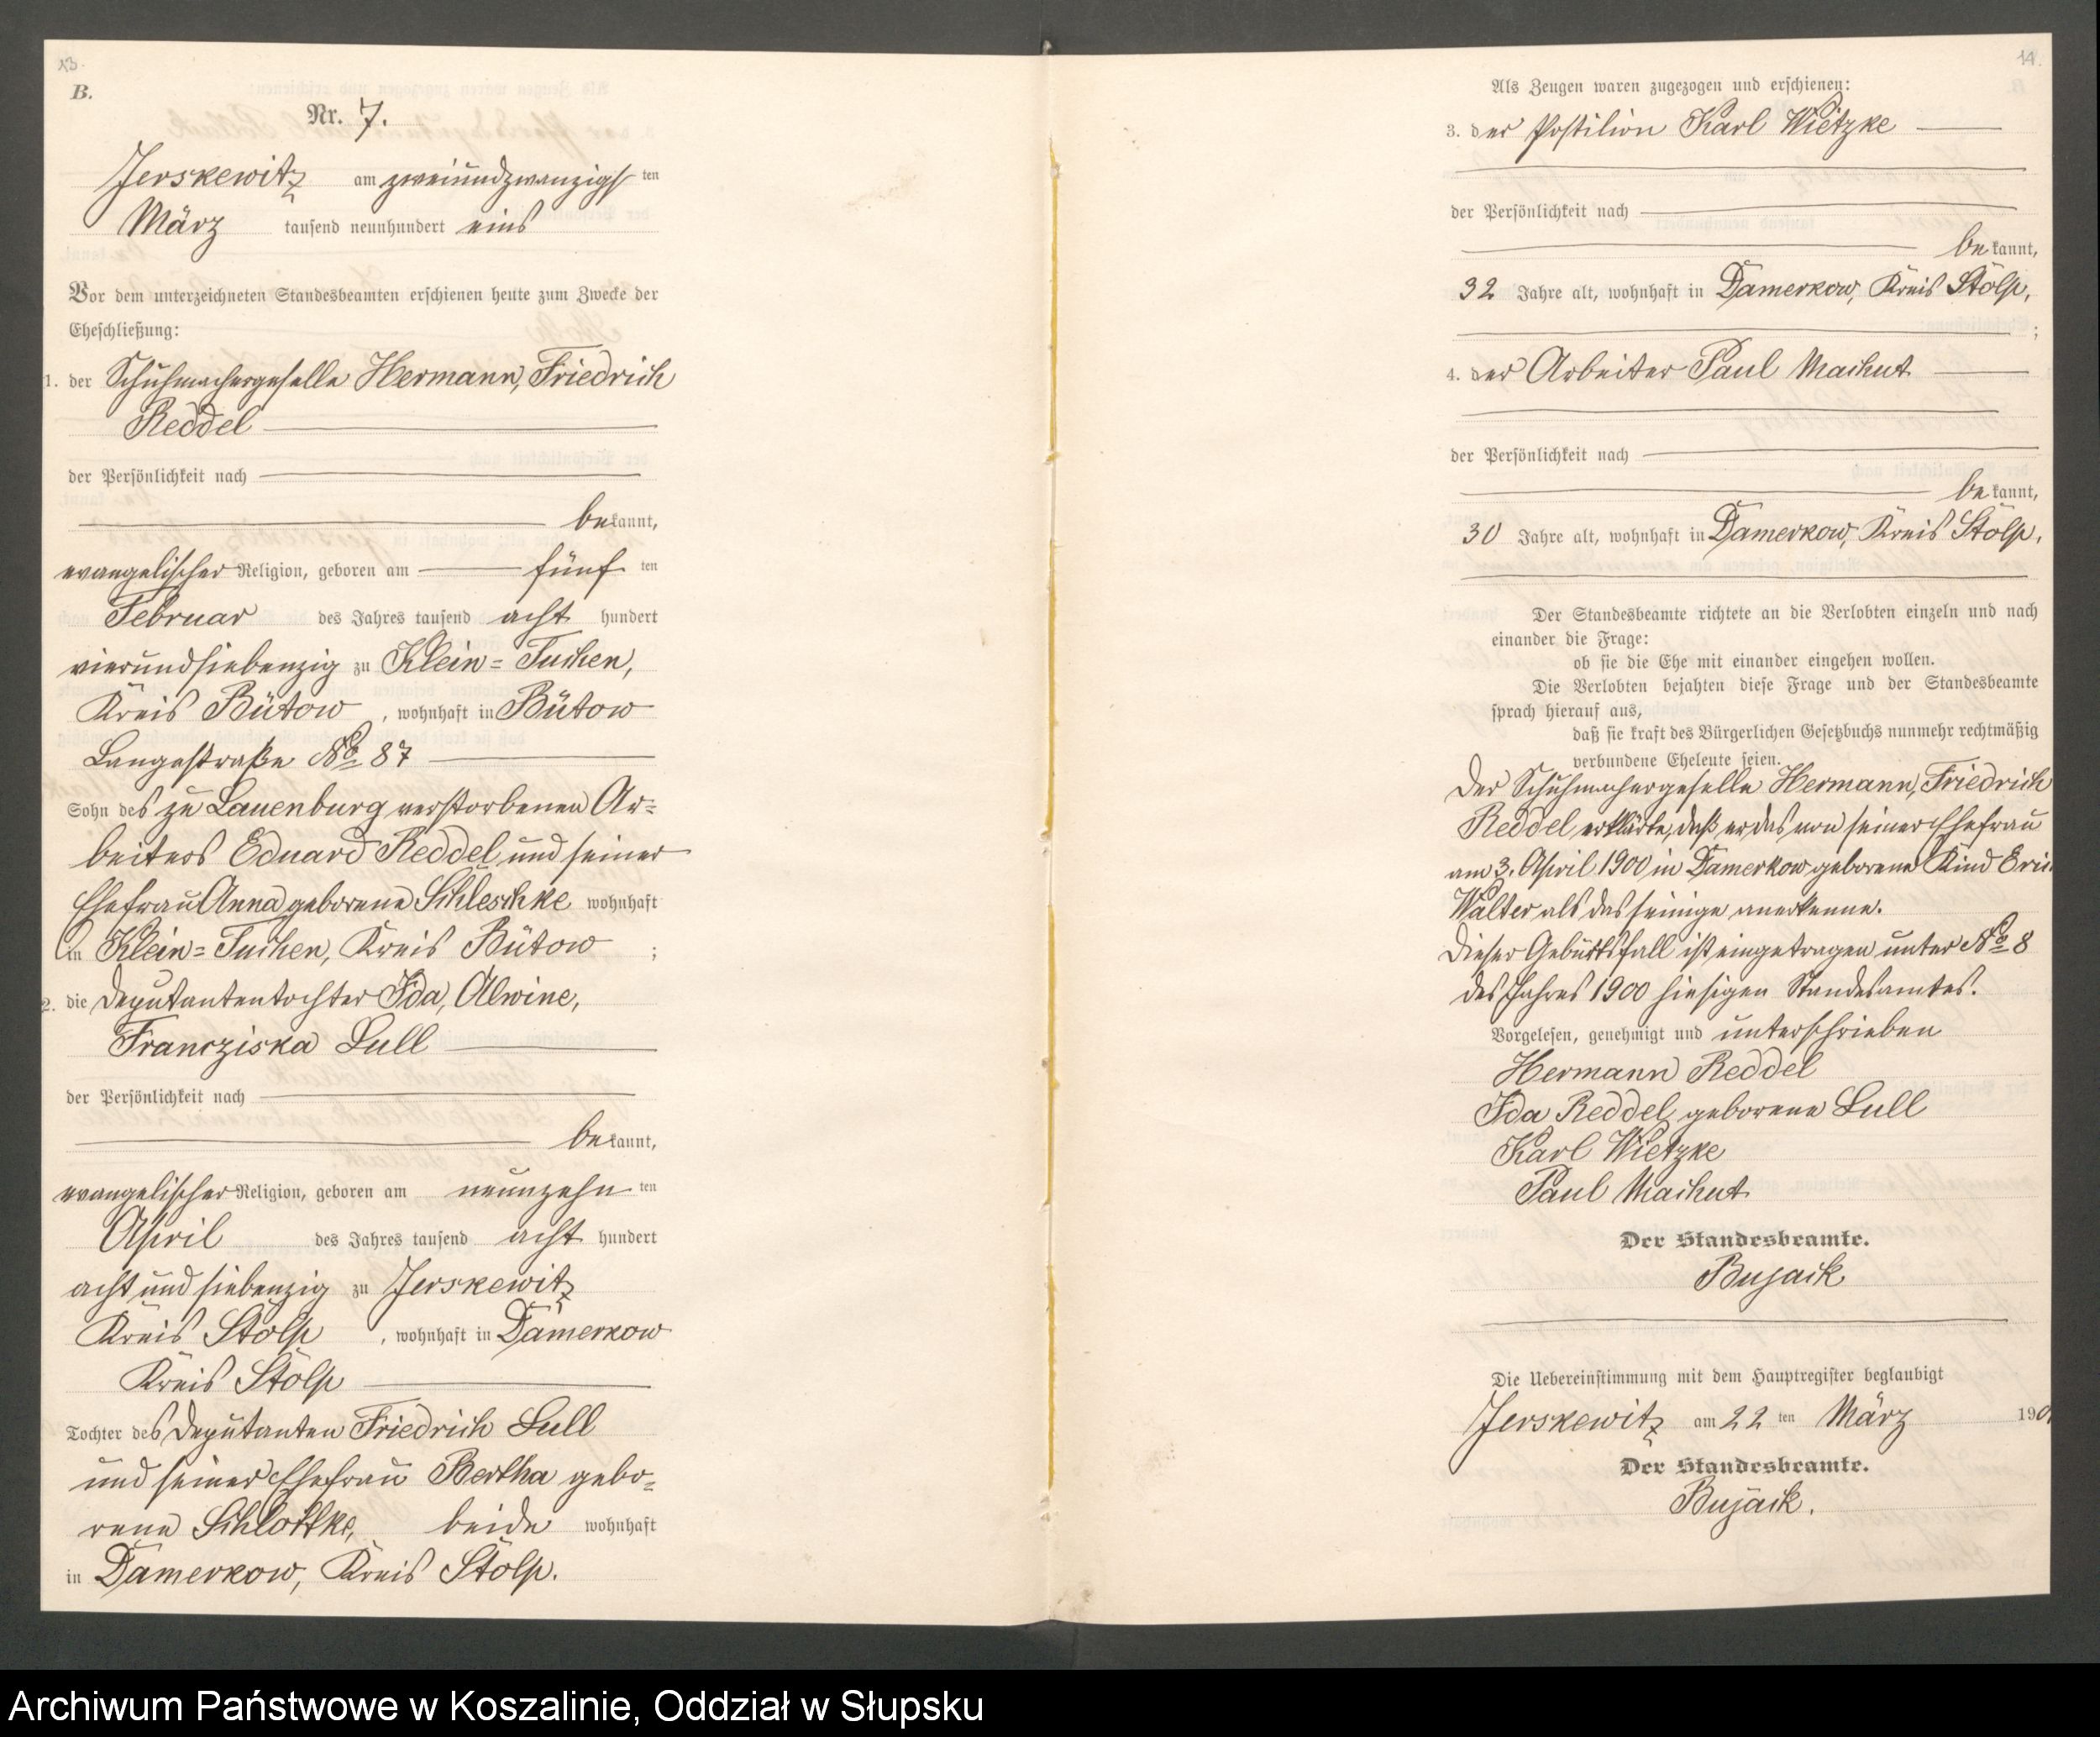 13.
B.
Nr. 7.
Jerskewitz am zweiundzwanzigsten
März tausend neunhundert eins
Vor dem unterzeichneten Standesbeamten erschienen heute zum Zwecke der
Eheschließung:
1. der Schuhmachergeselle Hermann, Friedrich
Reddel
der Persönlichkeit nach
bekannt,
evangelischer Religion, geboren am fünf ten
Februar des Jahres tausend acht hundert
vierundsiebenzig zu Klein=Tuchen,
Kreis Bütow, wohnhaft in Bütow
Langestraße No 87
Sohn des zu Lauenburg verstorbenen Ar=
beiters Eduard Reddel und seiner
Ehefrau Anna geborene Schleschke wohnhaft
in Klein=Tuchen, Kreis Bütow ;
2. die Deputantentochter Ida, Alwine,
Francziska Lull
der Persönlichkeit nach
bekannt,
evangelischer Religion, geboren am neunzehn ten
April des Jahres tausend acht hundert
acht und siebenzig zu Jerskewitz
Kreis Stolp, wohnhaft in Damerkow
Kreis Stolp
Tochter des Deputanten Friedrich Lull
und seiner Ehefrau Bertha gebo=
rene Schlottke, beide wohnhaft
in Damerkow, Kreis Stolp.
14.
Als Zeugen waren zugezogen und erschienen:
3. der Postilion Karl Wietzke
der Persönlichkeit nach
bekannt,
32 Jahre alt, wohnhaft in Damerkow, Kreis Stolp,
;
4. der Arbeiter Paul Machut
der Persönlichkeit nach
bekannt,
30 Jahre alt, wohnhaft in Damerkow, Kreis Stolp.
Der Standesbeamte richtete an die Verlobten einzeln und nach
einander die Frage:
ob sie die Ehe mit einander eingehen wollen.
Die Verlobten bejahten diese Frage und der Standesbeamte
sprach hierauf aus,
daß sie kraft des Bürgerlichen Gesetzbuchs nunmehr rechtmäßig
verbundene Eheleute seien.
Der Schuhmachergeselle Hermann, Friedrich
Reddel erklärte, daß er das von seiner Ehefrau
am 3. April 1900 in Damerkow geborene Kind Eric
Walter als das seinige anerkenne.
Dieser Geburtsfall ist eingetragen unter No 8
des Jahres 1900 hiesigen Standesamtes.
Vorgelesen, genehmigt und unterschrieben
Hermann Reddel
Ida Reddel, geborene Lull
Karl Wietzke
Paul Machut
Der Standesbeamte.
Bujack
Die Uebereinstimmung mit dem Hauptregister beglaubigt
Jerskewitz am 22 ten März 190
Der Standesbeamte.
Bujack.
Archiwum Państwowe w Koszalinie, Oddział w Słupsku